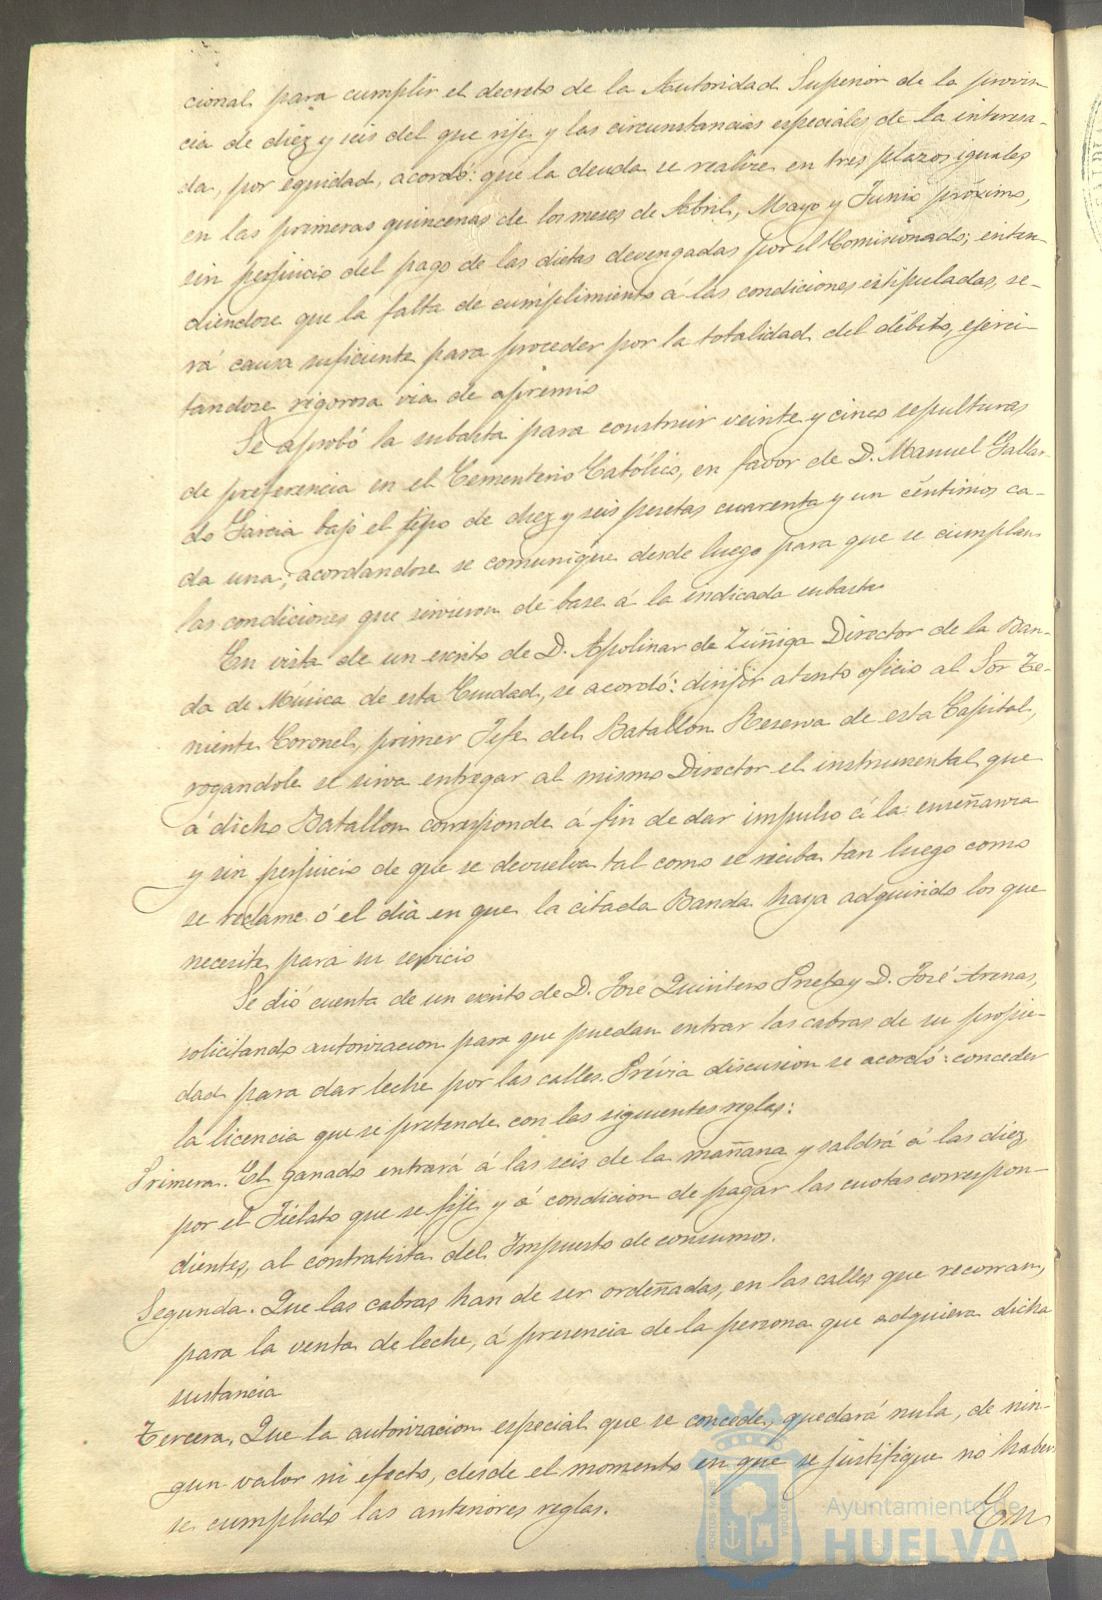 cional para cumplir el decreto de la Autoridad Superior de la provin
cia de diez y seis del que rije y las circunstancias especiales de la interesa-
da, por equidad, acordó: que la deuda se realize en tres plazos iguales
en las primeras quincenas de los meses de Abril, Mayo y Junio próximo,
sin perjuicio del pago de las dietas devengadas por el Comisionado; enten
diendose que la falta de cumplimiento á las condiciones estipuladas, se-
rá causa suficiente para proceder por la totalidad del débito, ejerci-
tandose rigorosa via de apremio
Se aprobó la subasta para construir veinte y cinco sepulturas
de preferencia en el Cementerio Católico, en favor de D. Manuel Gallar-
do Garcia bajo el tipo de diez y seis pesetas cuarenta y un céntimos ca-
da una; acordandose se comunique desde luego para que se cumplan
las condiciones que sirvieron de base á la indicada subasta
En vista de un escrito de D. Apolinar de Zúñiga Director de la Ban-
da de Música de esta Ciudad, se acordó: dirijir atento oficio al Sor Te-
niente Coronel, primer Jefe del Batallon Reserva de esta Capital,
rogandole se sirva entregar al mismo Director el instrumental que
á dicho Batallon corresponde á fin de dar impulso á la enseñanza
y sin perjuicio de que se devuelva tal como se reciba tan luego como
se reclame ó el dia en que la citada Banda haya adquirido los que
necesite para su servicio
Se dió cuenta de un escrito de D. José Quintero Prieto y D. José Arenas,
solicitando autorizacion para que puedan entrar las cabras de su propie-
dad para dar leche por las calles. Prévia discusion se acordó: conceder
la licencia que se pretende con las siguientes reglas:
Primera. El ganado entrará á las seis de la mañana y saldrá á las diez,
por el Fielato que se fije y á condicion de pagar las cuotas correspon-
dientes, al contratista del Impuesto de consumos.
Segunda. Que las cabras han de ser ordeñadas, en las calles que recorran,
para la venta de leche, á presencia de la persona que adquiera dicha
sustancia
Tercera. Que la autorizacion especial que se concede, quedará nula, de nin-
gun valor ni efecto, desde el momento en que se justifique no haber
se cumplido las anteriores reglas.
En
Ayuntamiento de
HUELVA